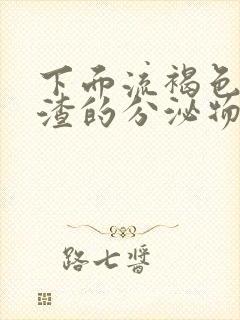 下面流褐色
渣的分泌物
路七酱